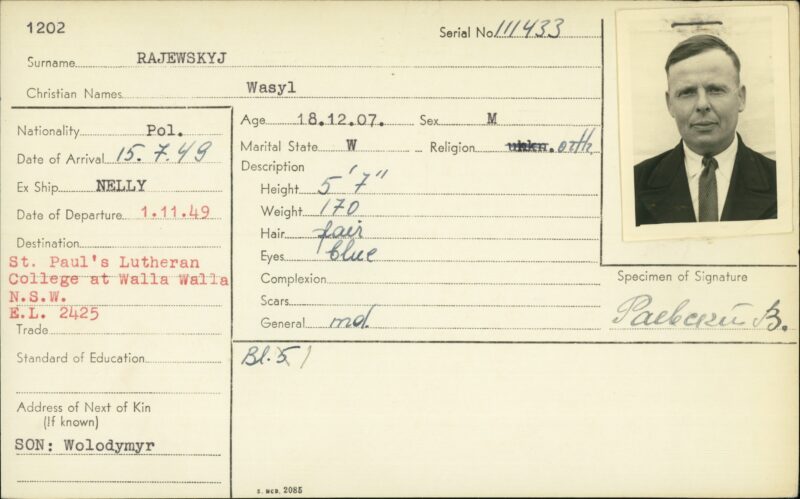 1202
Serial No. 111433
Surname RAJEWSKYJ
Christian Names Wasyl
Nationality Pol.
Date of Arrival 15.7.49
Ex Ship NELLY
Date of Departure 1.11.49
Destination
St. Paul's Lutheran
College at Walla Walla
N.S.W.
E.L. 2425
Trade
Standard of Education
Address of Next of Kin
(If known)
SON: Wolodymyr
Age 18.12.07. Sex M
Marital State W Religion ukkn. orth
Description
Height 5'7"
Weight 170
Hair fair
Eyes blue
Complexion
Scars
General md.
Bl. 5
Specimen of Signature
Раевский В.
S. MCD. 2085